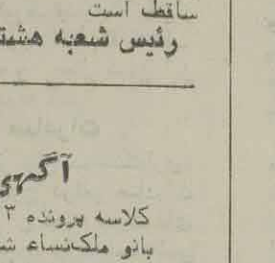 ساقط است
رئیس شعبه هشت
آگهی
کلاسه پرونده ۳
بانو ملک‌نساء ش